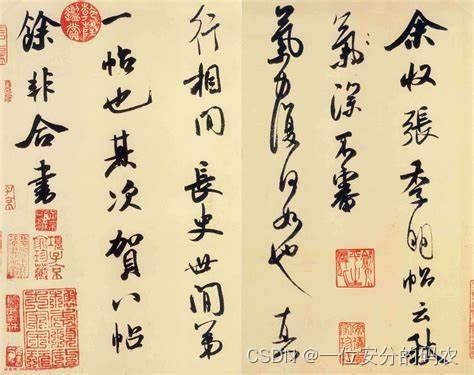 余收張季明帖云秋
氣深不審
氣力復何如也真
行相間長史世間第
一帖也其次賀八帖
餘非合書
乾隆鑑賞
項子京家珍藏
CSDN @一位安分的码农